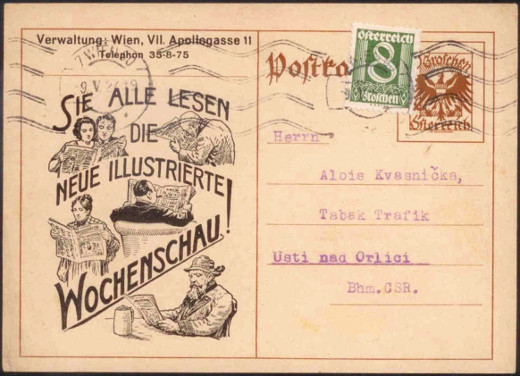 Verwaltung: Wien, VII. Apollogasse 11
Telephon 35-8-75
SIE ALLE LESEN
DIE
NEUE ILLUSTRIERTE
WOCHENSCHAU!
Postka
Österreich
8
Groschen
Groschen
Österreich
Herrn
Alois Kvasnička,
Tabak Trafik
Usti nad Orlici
Bhm.CSR.